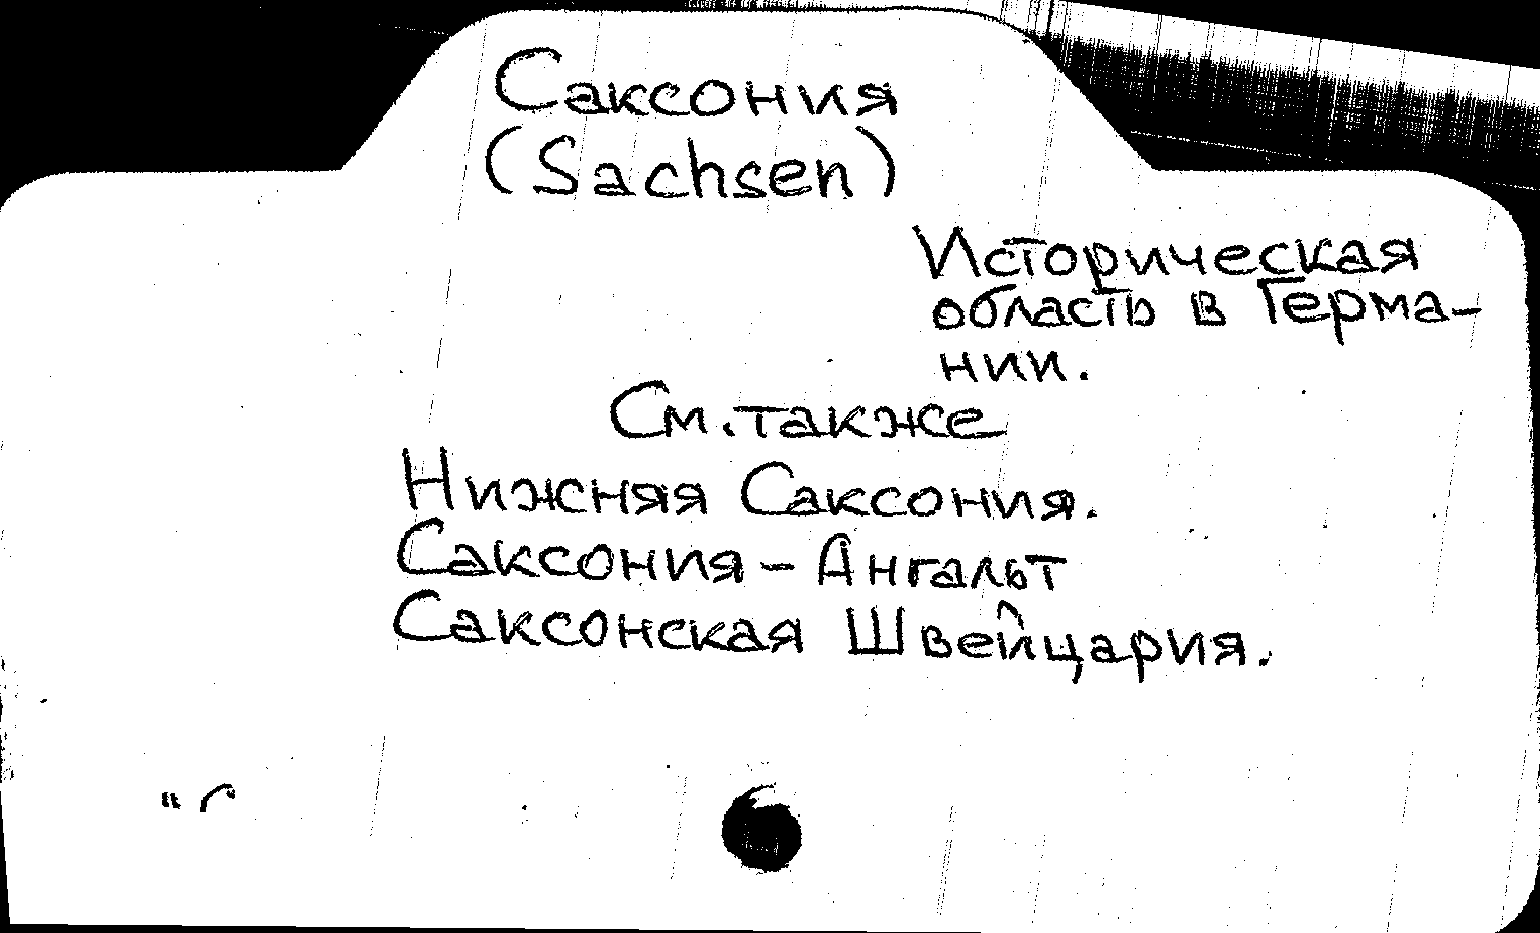 Саксония
(Sachsen)
Историческая
область в Герма-
нии.
См. также
Нижняя Саксония.
Саксония - Ангальт
Саксонская Швейцария.